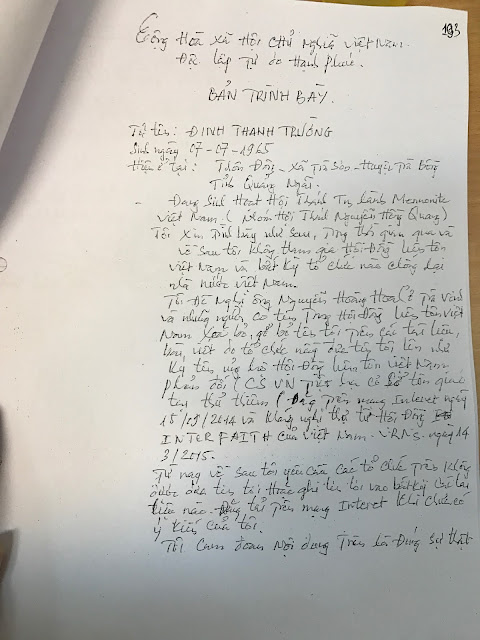 193
Cộng Hoà Xã Hội Chủ Nghĩa Việt Nam
Độc lập Tự do Hạnh Phúc.
BẢN TRÌNH BÀY.
Tôi tên: ĐINH THANH TRƯỜNG
Sinh ngày 07-07-1965
Hiện ở tại: Thôn Đông - Xã Trà Sơn - Huyện Trà Bồng
Tỉnh Quảng Ngãi.
- Đang Sinh Hoạt Hội Thánh Tin Lành Mennonite
Việt Nam. (Nhóm Hội Thánh Nguyễn Hồng Quang)
Tôi Xin Trình bày như sau, Trong thời gian qua và
về sau tôi không tham gia Hội Đồng liên tôn
việt Nam và bất kỳ tổ chức nào chống lại
nhà nước việt Nam.
Tôi Đề Nghị ông Nguyễn Hoàng Hoa ở Trà Vinh
và những người có tên Trong Hội Đồng liên tôn việt
Nam loại bỏ, gỡ bỏ tên tôi trên các tài liệu,
bài viết do tổ chức này đưa tên tôi lên như
Ký tên ủng hộ Hội Đồng liên tôn Việt Nam
phản đối (CS VN triệt hạ cơ sở tôn giáo
tại thủ thiêm (Đăng trên mạng Interet ngày
15/09/2014 và Kháng nghị thư từ Hội Đồng
INTERFAITH của Việt Nam - VRNs. ngày 14
3/2015.
Từ nay về sau tôi yêu cầu các tổ chức trên không
được đưa tên tôi Hoặc ghi tên tôi vào bất kỳ tài
liệu nào. Đăng tải trên mạng Interet Khi chưa có
ý Kiến của tôi.
Tôi Cam đoan Nội dung Trên là Đúng sự thật